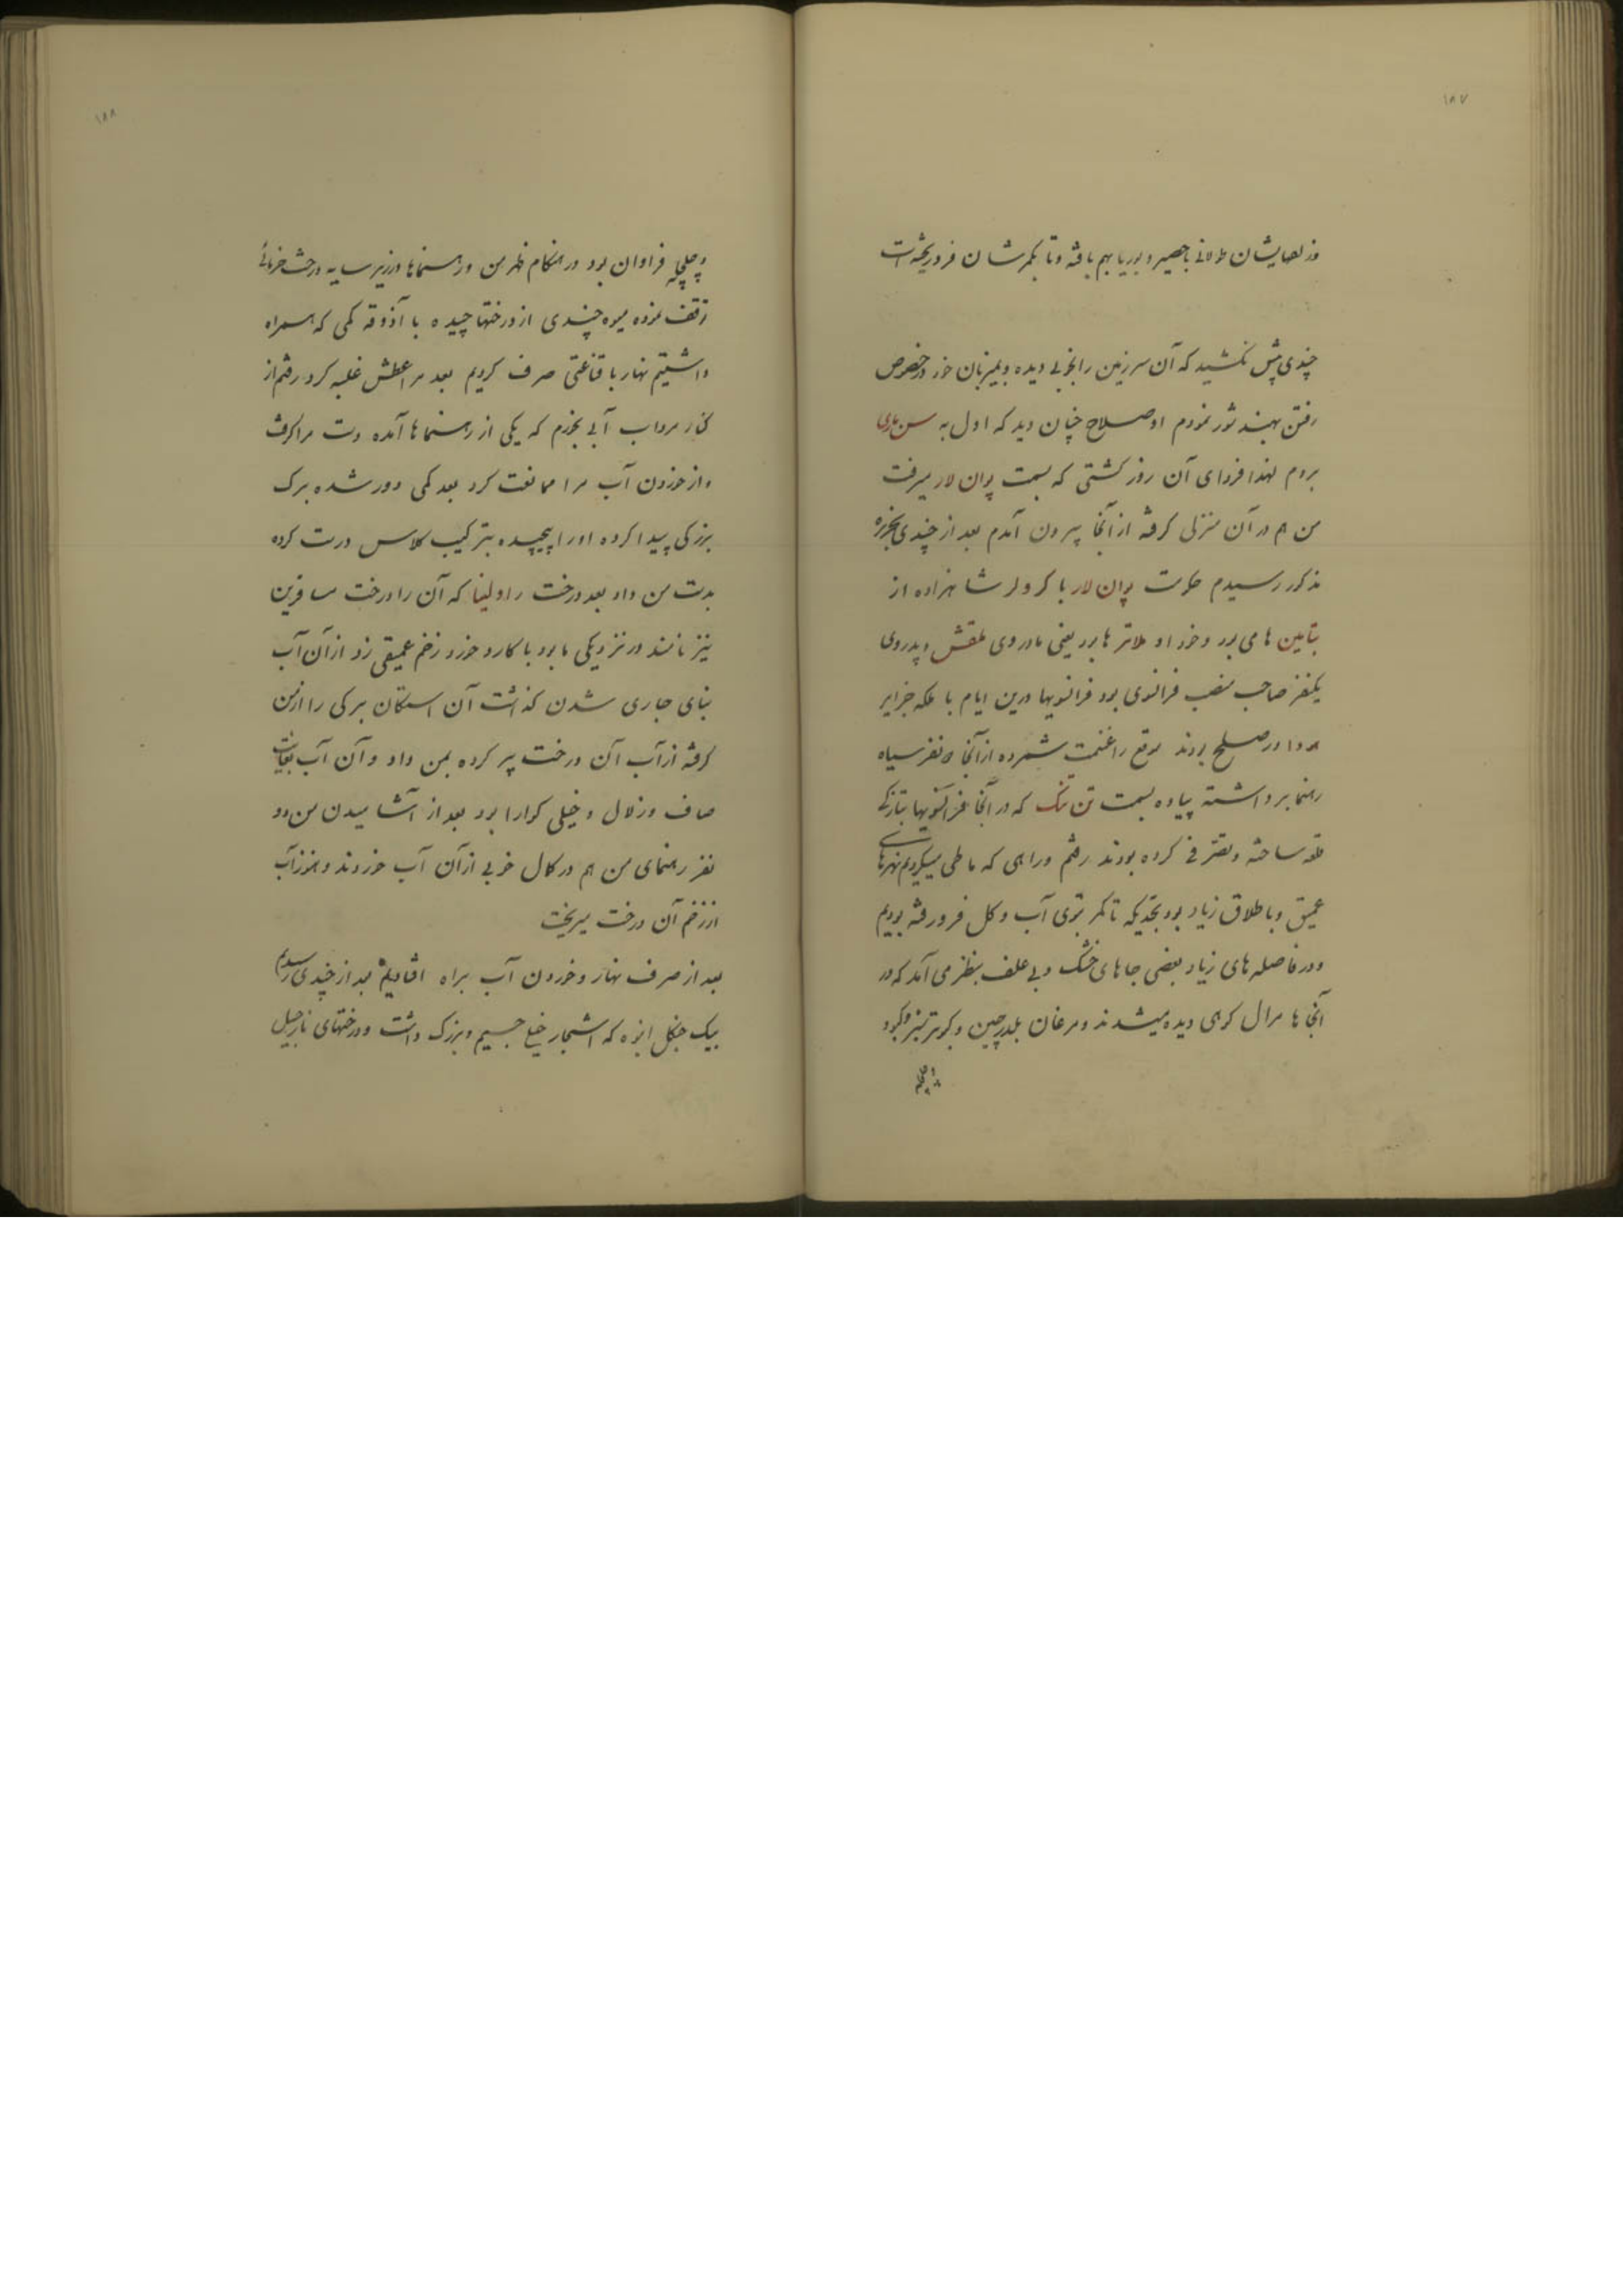 ۱۸۷
وزلفهایشان طولانی با حصیر و بوریا بهم بافته و تا کمرشان فروریخته است
چندی پیش نکشید که آن سرزمین را بخوبی دیده و بمیزبان خود درخصوص
رفتن بهند شور نمودم او صلاح چنان دید که اول به سن ماری
بروم لهذا فردای آن روز کشتی که بسمت پوان لار میرفت
من هم در آن منزلی کرفته از آنجا بیرون آمدم بعد از چندی بجزیره
مذکور رسیدم حکومت پوان لار با کرولر شاهزاده از
بتامین ها می بود و خود او ملاتر ها بود یعنی مادر وی ملقش و پدر وی
یکنفر صاحب منصب فرانسوی بود فرانسویها درین ایام با ملکه جزایر
هووا در صلح بودند موقع را غنیمت شمرده از آنجا ۵ نفر سیاه
رهنما برداشته پیاده بسمت تن تنک که در آنجا فرانسویها بتازکی
قلعه ساخته و تصرفی کرده بودند رفتم و راهی که ما طی میکردیم نهرهای
عمیق و باطلاق زیاد بود بحدیکه تا کمر بتوی آب و کل فرو رفته بودیم
و در فاصله های زیاد بعضی جاهای خشک و بی علف بنظر می آمد که در
آنجا ها مرال کوهی دیده میشدند و مرغان بلدرچین و کبوتر سبز و کبود
و چلچله
۱۸۸
و چلچله فراوان بود در هنکام ظهر من و رهنماها در زیر سایه درخت خرمائی
توقف نموده میوه چندی از درختها چیده با آذوقه کمی که همراه
داشتیم نهار با قناعتی صرف کردیم بعد مرا عطش غلبه کرد رفتم از
کنار مرداب آبی بخورم که یکی از رهنماها آمده دست مرا کرفت
و از خوردن آب مرا ممانعت کرد بعد کمی دور شده برک
بزرکی پیدا کرده او را پیچیده بترکیب کلاس درست کرده
بدست من داد بعد درخت راولینا که آن را درخت مسافرین
نیز نامند در نزدیکی ما بود با کارد خود زخم عمیقی زد از آن آب
بنای جاری شدن کذاشت آن استکان برکی را از من
کرفته از آب آن درخت پر کرده بمن داد و آن آب بغایت
صاف و زلال و خیلی کوارا بود بعد از آشامیدن من دو
نفر رهنمای من هم در کمال خوبی از آن آب خوردند و هنوز آب
از زخم آن درخت میریخت
بعد از صرف نهار و خوردن آب براه افتادیم بعد از چندی رسیدیم
بیک جنکل انبوه که اشجار خیلی جسیم و بزرک داشت و درختهای نارجیل